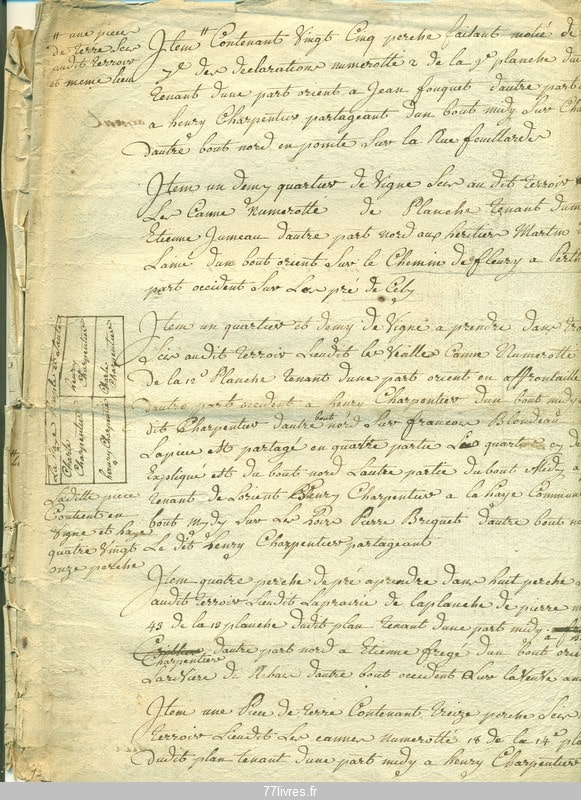 # une piece
de terre scis
audit terroir
et meme lieu
Jtem # Contenant Vingt Cinq perche faisant moitié de
des declarations numerotté 2 de la planche du
tenant dune part orient a Jean fouquet dautre part
a henry Charpentier partageant dun bout midy sur
Dautre bout nord en pointe sur la Rue feuillarde
Jtem un demy quartier de Vigne Scis au dit terroir
Les Canne Numerotté de Planche tenant dune
Etienne Jumeau dautre part nord aux heritier Martin
Lami dun bout orient sur le Chemin de fleury a Perth
part occident sur Les pré de Cely
Jtem un quartier et demy de Vigne a prendre dans
Scis audit terroir Lieudit les Vieille Canne Numerotté
de la 12e Planche tenant dune part orient en affrontaille
dautre part occident a henry Charpentier dun bout midy
dit Charpentier dautre bout nord sur francois Blondeau
Lapiece est partagé en quatre partie Les quartier cy de
Expliqué est du bout nord Lautre partie du bout Midy
tenant de Lorient henry Charpentier a la haye Commun
bout mydy sur Les hoirs Pierre Briquet dautre bout n
Le dit henry Charpentier partageant
Charle Charpentier
henry Charpentier
henry Charpentier
Charle Charpentier
Laditte piece
Contient en
Vigne et haye
quatre Vingt
onze perche
Jtem quatre perche de pré aprendre dans huit perche
audit terroir Lieudit Laprairie de laplanche de pierre
43 de la 10 planche dudit plan tenant dune part midy a
Charpentier dautre part nord a Etienne frege dun bout orie
Lariviere de Rebais dautre bout occident sur laveuve
Jtem une Piece de terre Contenant treize perche Scis
terroir Lieudit Les cannes numerotté 18 de la 14e pla
dudit plan tenant dune part midy a henry Charpentier
77livres.fr